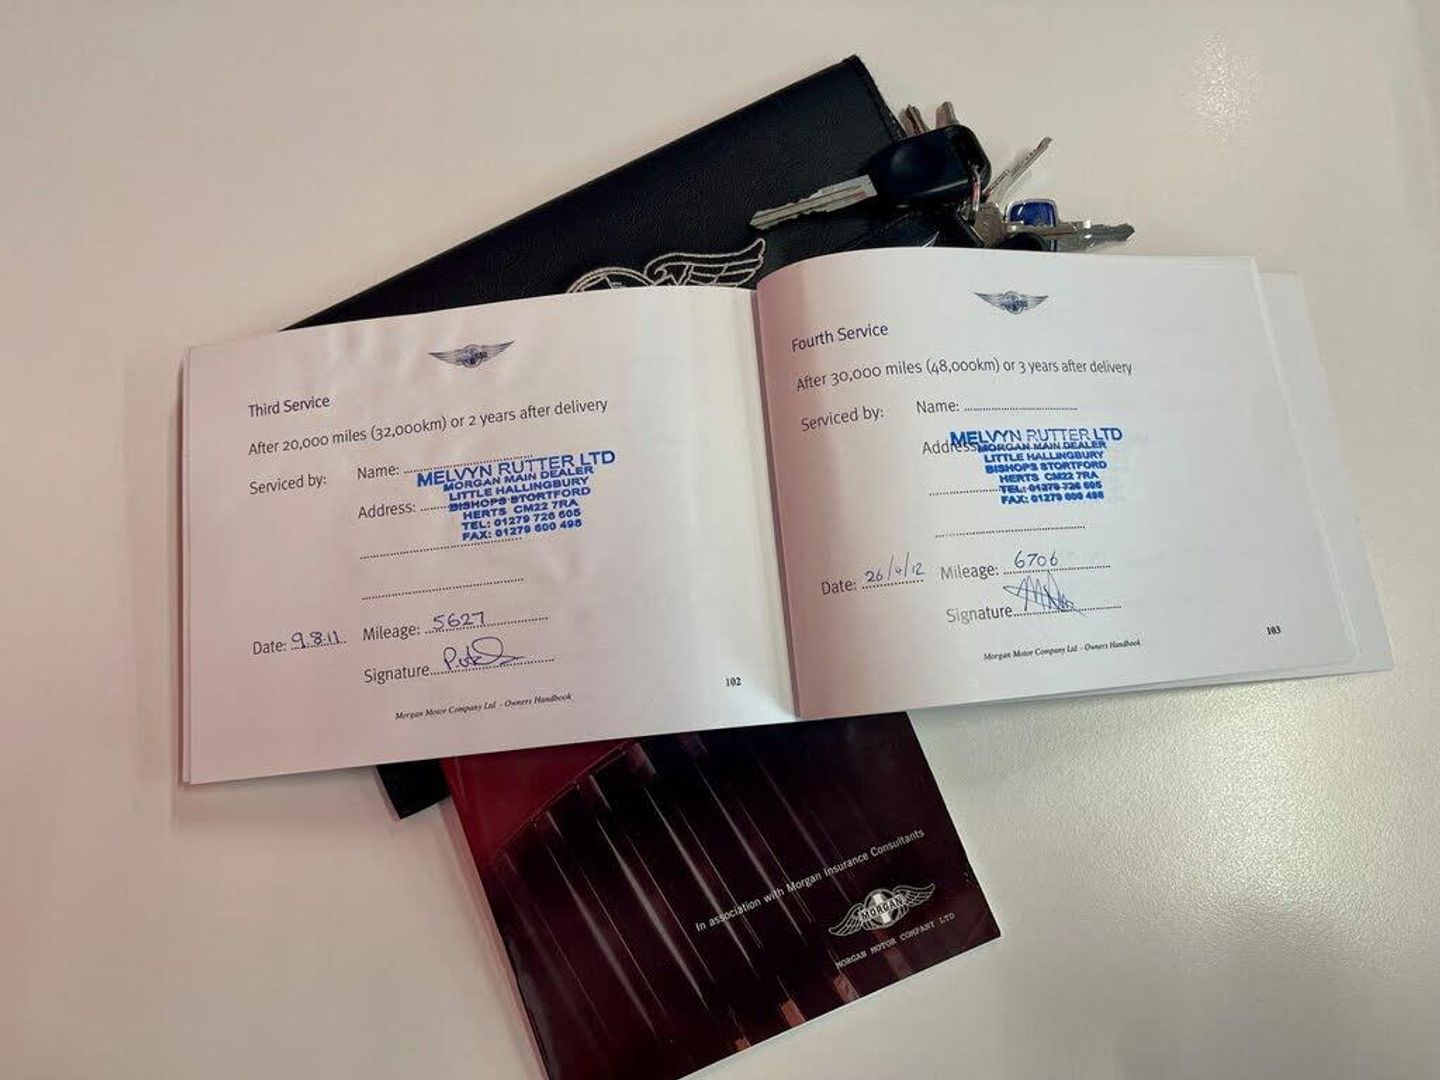 Third Service
After 20,000 miles (32,000km) or 2 years after delivery
Serviced by: Name:
MELVYN RUTTER LTD
MORGAN MAIN DEALER
Address: LITTLE HALLINGBURY
BISHOPS STORTFORD
HERTS CM22 7RA
TEL: 01279 725 605
FAX: 01279 600 495
Date: 9.8.11. Mileage: 5627
Signature
102
Morgan Motor Company Ltd - Owners Handbook
Fourth Service
After 30,000 miles (48,000km) or 3 years after delivery
Serviced by: Name:
MELVYN RUTTER LTD
Address: MORGAN MAIN DEALER
LITTLE HALLINGBURY
BISHOPS STORTFORD
HERTS CM22 7RA
TEL: 01279 725 605
FAX: 01279 600 495
Date: 26/4/12 Mileage: 6706
Signature
103
Morgan Motor Company Ltd - Owners Handbook
In association with Morgan Insurance Consultants
MORGAN
MORGAN MOTOR COMPANY LTD